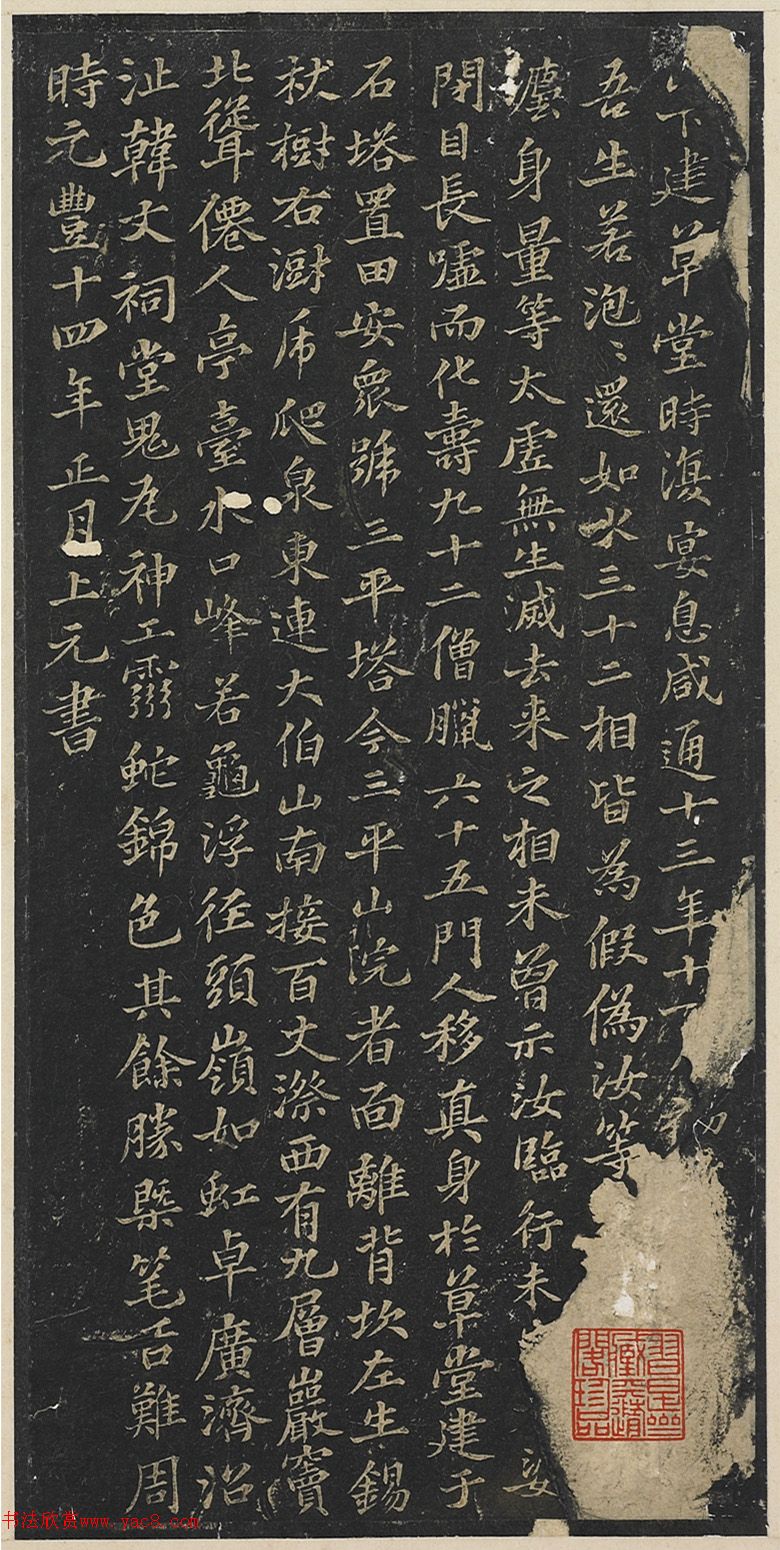 下建草堂時復宴息咸通十三年十一
吾生若泡〻還如水三十二相皆為假偽汝等
身量等太虛無生滅去来之相未曾示汝臨行未
閇目長噓而化壽九十二僧臘六十五門人移真身於草堂建于
石塔置田安衆號三平塔今三平山院者面離背坎左生錫
杖樹右澍乕爬泉東連大伯山南接百丈漈西有九層巖竇
北聳僊人亭臺水口峰若龜浮徑頭嶺如虹卓廣濟沿
沚韓文祠堂鬼尾神工蛇錦色其餘勝槩笔舌難周
時元豐十四年正月上元書
书法欣赏www.yac8.com